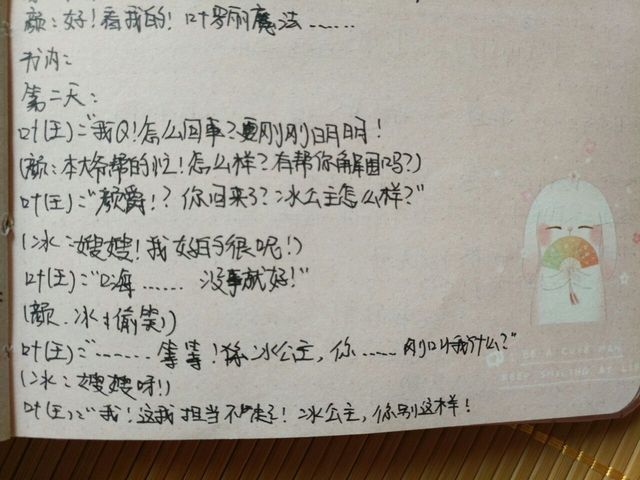 颜:好!看我的!叶罗丽魔法……
书内:
第二天:
叶(王):“我Q!怎么回事?要刚刚明明!
(颜:本大爷帮的忙!怎么样?有帮你解困吗?)
叶(王):“颜爵!?你归来了?冰公主怎么样?”
(冰:嫂嫂!我好得很呢!)
叶(王):“嗨……没事就好!”
(颜.冰:偷笑))
叶(王):“……等等!冰公主,你……刚叫我什么?”
(冰:嫂嫂呀!)
叶(王):“我!这我担当不起!冰公主,你别这样!
BE A CUTE MAN
KEEP SMILING AT LIFE